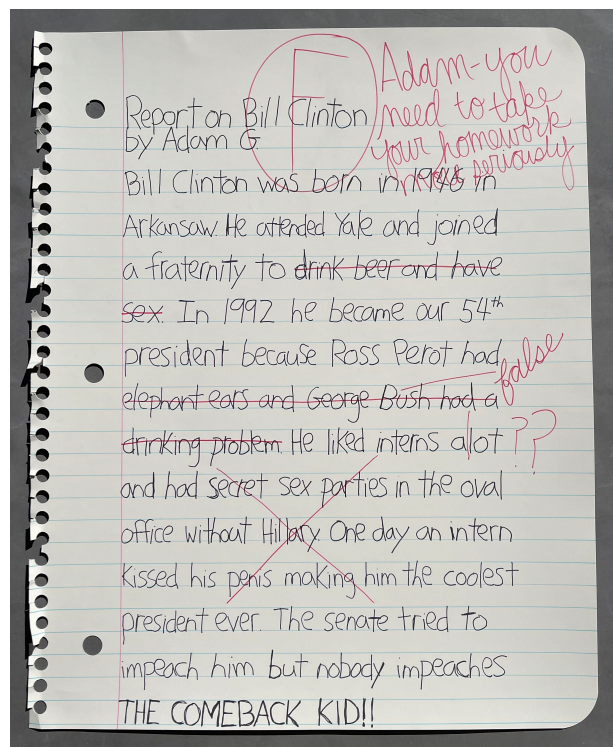 F
Adam-you
need to take
your homework
more seriously
Report on Bill Clinton
by Adam G
Bill Clinton was born in 1946 in
Arkansaw. He attended Yale and joined
a fraternity to drink beer and have
sex. In 1992 he became our 54th
president because Ross Perot had
false
elephant ears and George Bush had a
drinking problem. He liked interns alot
??
and had secret sex parties in the oval
office without Hillary. One day an intern
kissed his penis making him the coolest
president ever. The senate tried to
impeach him but nobody impeaches
THE COMEBACK KID!!